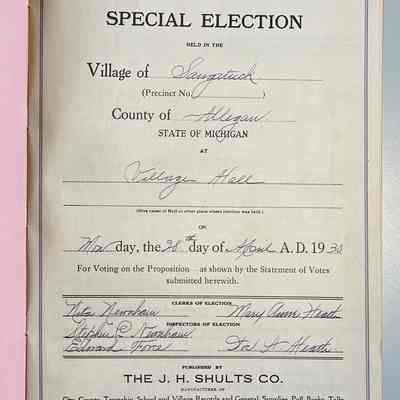 SPECIAL ELECTION
HELD IN THE
Village of Saugatuck
(Precinct No. )
County of Allegan
STATE OF MICHIGAN
AT
Village Hall
(Give name of Hall or other place where election was held.)
ON
Mon day, the 28th day of April A. D. 1930
For Voting on the Proposition as shown by the Statement of Votes
submitted herewith.
CLERKS OF ELECTION
Nita Newnham Mary Ann Heath
INSPECTORS OF ELECTION
Stephen L Newnham
Edward Force Heath
PUBLISHED BY
THE J. H. SHULTS CO.
MANUFACTURER OF
City, County, Township, School and Village Records and General Supplies, Poll Books, Tally